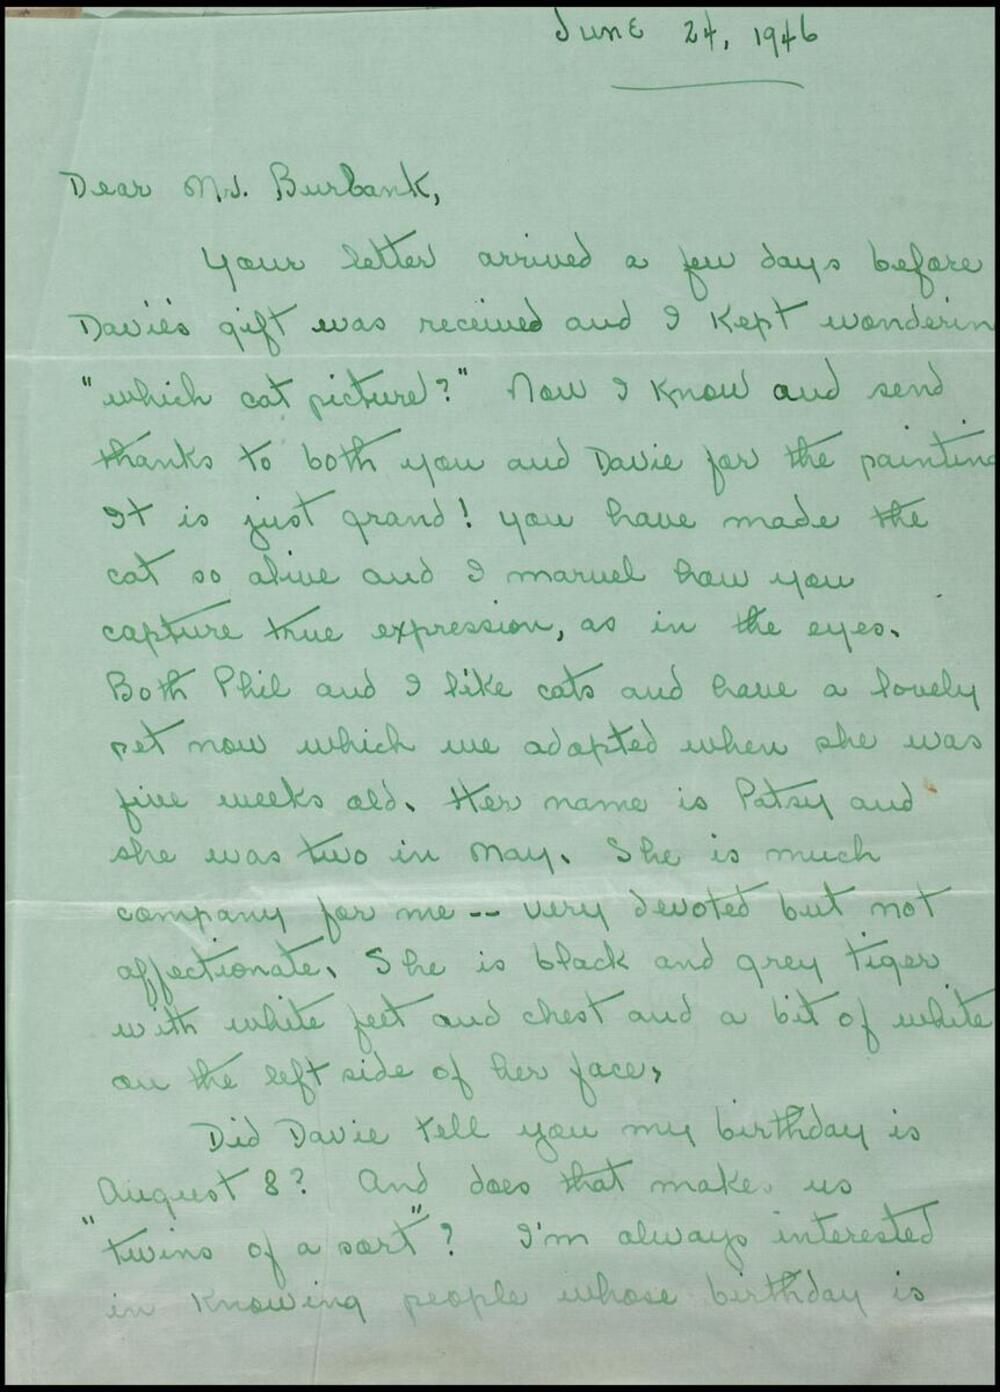 June 24, 1946
Dear Mr. Burbank,
Your letter arrived a few days before
Davie's gift was received and I kept wonderin
"which cat picture?" Now I know and send
thanks to both you and Davie for the painting
It is just grand! you have made the
cat so alive and I marvel how you
capture true expression, as in the eyes.
Both Phil and I like cats and have a lovely
pet now which we adopted when she was
five weeks old. Her name is Patsy and
she was two in May. She is much
company for me -- very devoted but not
affectionate. She is black and grey tiger
with white feet and chest and a bit of white
on the left side of her face.
Did Davie tell you my birthday is
August 8? And does that make us
"twins of a sort"? I'm always interested
in knowing people whose birthday is